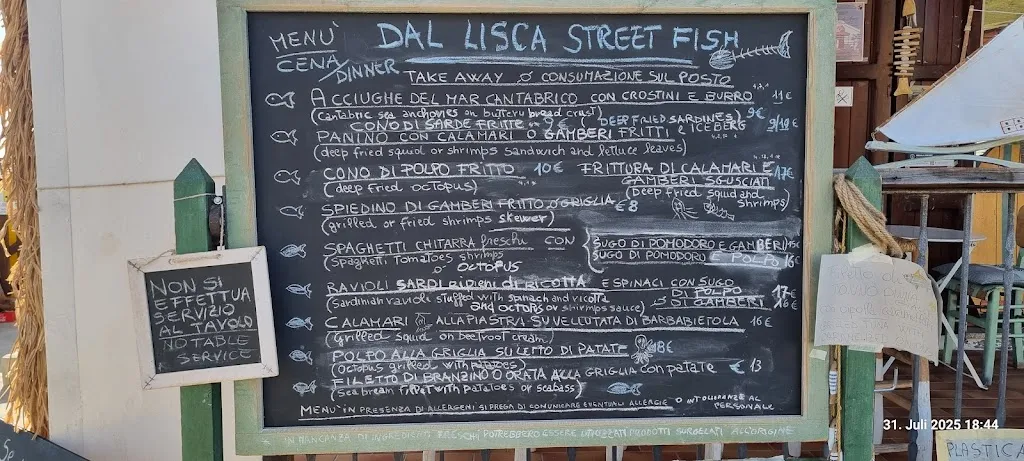 MENÙ
CENA/DINNER
DAL LISCA STREET FISH
TAKE AWAY O CONSUMAZIONE SUL POSTO
ACCIUGHE DEL MAR CANTABRICO CON CROSTINI E BURRO 11€
(Cantabric sea anchovies on buttery bread crust)
CONO DI SARDE FRITTE (DEEP FRIED SARDINES) 9€
PANINO CON CALAMARI O GAMBERI FRITTI E ICEBERG 9/10€
(deep fried squid or shrimps sandwich and lettuce leaves)
CONO DI POLPO FRITTO 10€
(deep fried octopus)
FRITTURA DI CALAMARI E 17€
GAMBERI SGUSCIATI
(Deep fried squid and shrimps)
SPIEDINO DI GAMBERI FRITTO O GRIGLIA €8
(grilled or fried shrimps skewer)
SPAGHETTI CHITARRA freschi CON
(Spaghetti tomatoes shrimps
o OCTOPUS
SUGO DI POMODORO E GAMBERI
SUGO DI POMODORO E POLPO 16€
RAVIOLI SARDI RIPIENI DI RICOTTA E SPINACI CON SUGO
DI POLPO 17€
(Sardinian ravioli stuffed with spinach and ricotta
and OCTOPUS or shrimps sauce)
DI GAMBERI 16€
CALAMARI ALLA PIASTRA SU VELLUTATA DI BARBABIETOLA 16€
(Grilled squid on beetroot cream)
POLPO ALLA GRIGLIA SU LETTO DI PATATE 18€
(Octopus grilled with potatoes)
FILETTO DI BRANZINO O ORATA ALLA GRIGLIA con patate €13
(Sea bream fillet with patatoes or seabass)
MENU' IN PRESENZA DI ALLERGENI SI PREGA DI COMUNICARE EVENTUALI ALLERGIE O INTOLLERANZE AL PERSONALE
IN MANCANZA DI INGREDIENTI FRESCHI POTREBBERO ESSERE UTILIZZATI PRODOTTI SURGELATI ALL'ORIGINE
NON SI
EFFETTUA
SERVIZIO
AL TAVOLO
NO TABLE
SERVICE
31. Juli 2025 18:44
PLASTICA